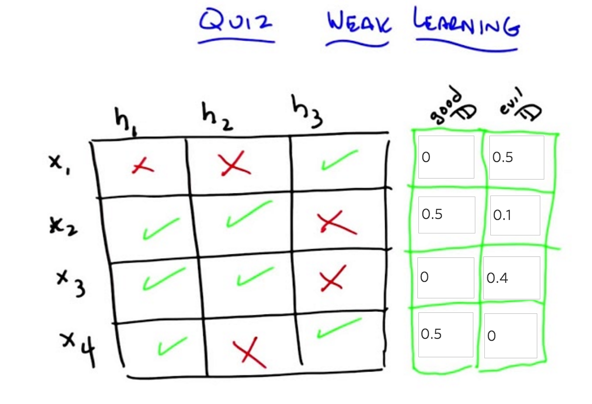 QUIZ WEAK LEARNING
h1 h2 h3 good D evil D
x1 ✗ ✗ ✓ 0 0.5
x2 ✓ ✓ ✗ 0.5 0.1
x3 ✓ ✓ ✗ 0 0.4
x4 ✓ ✗ ✓ 0.5 0